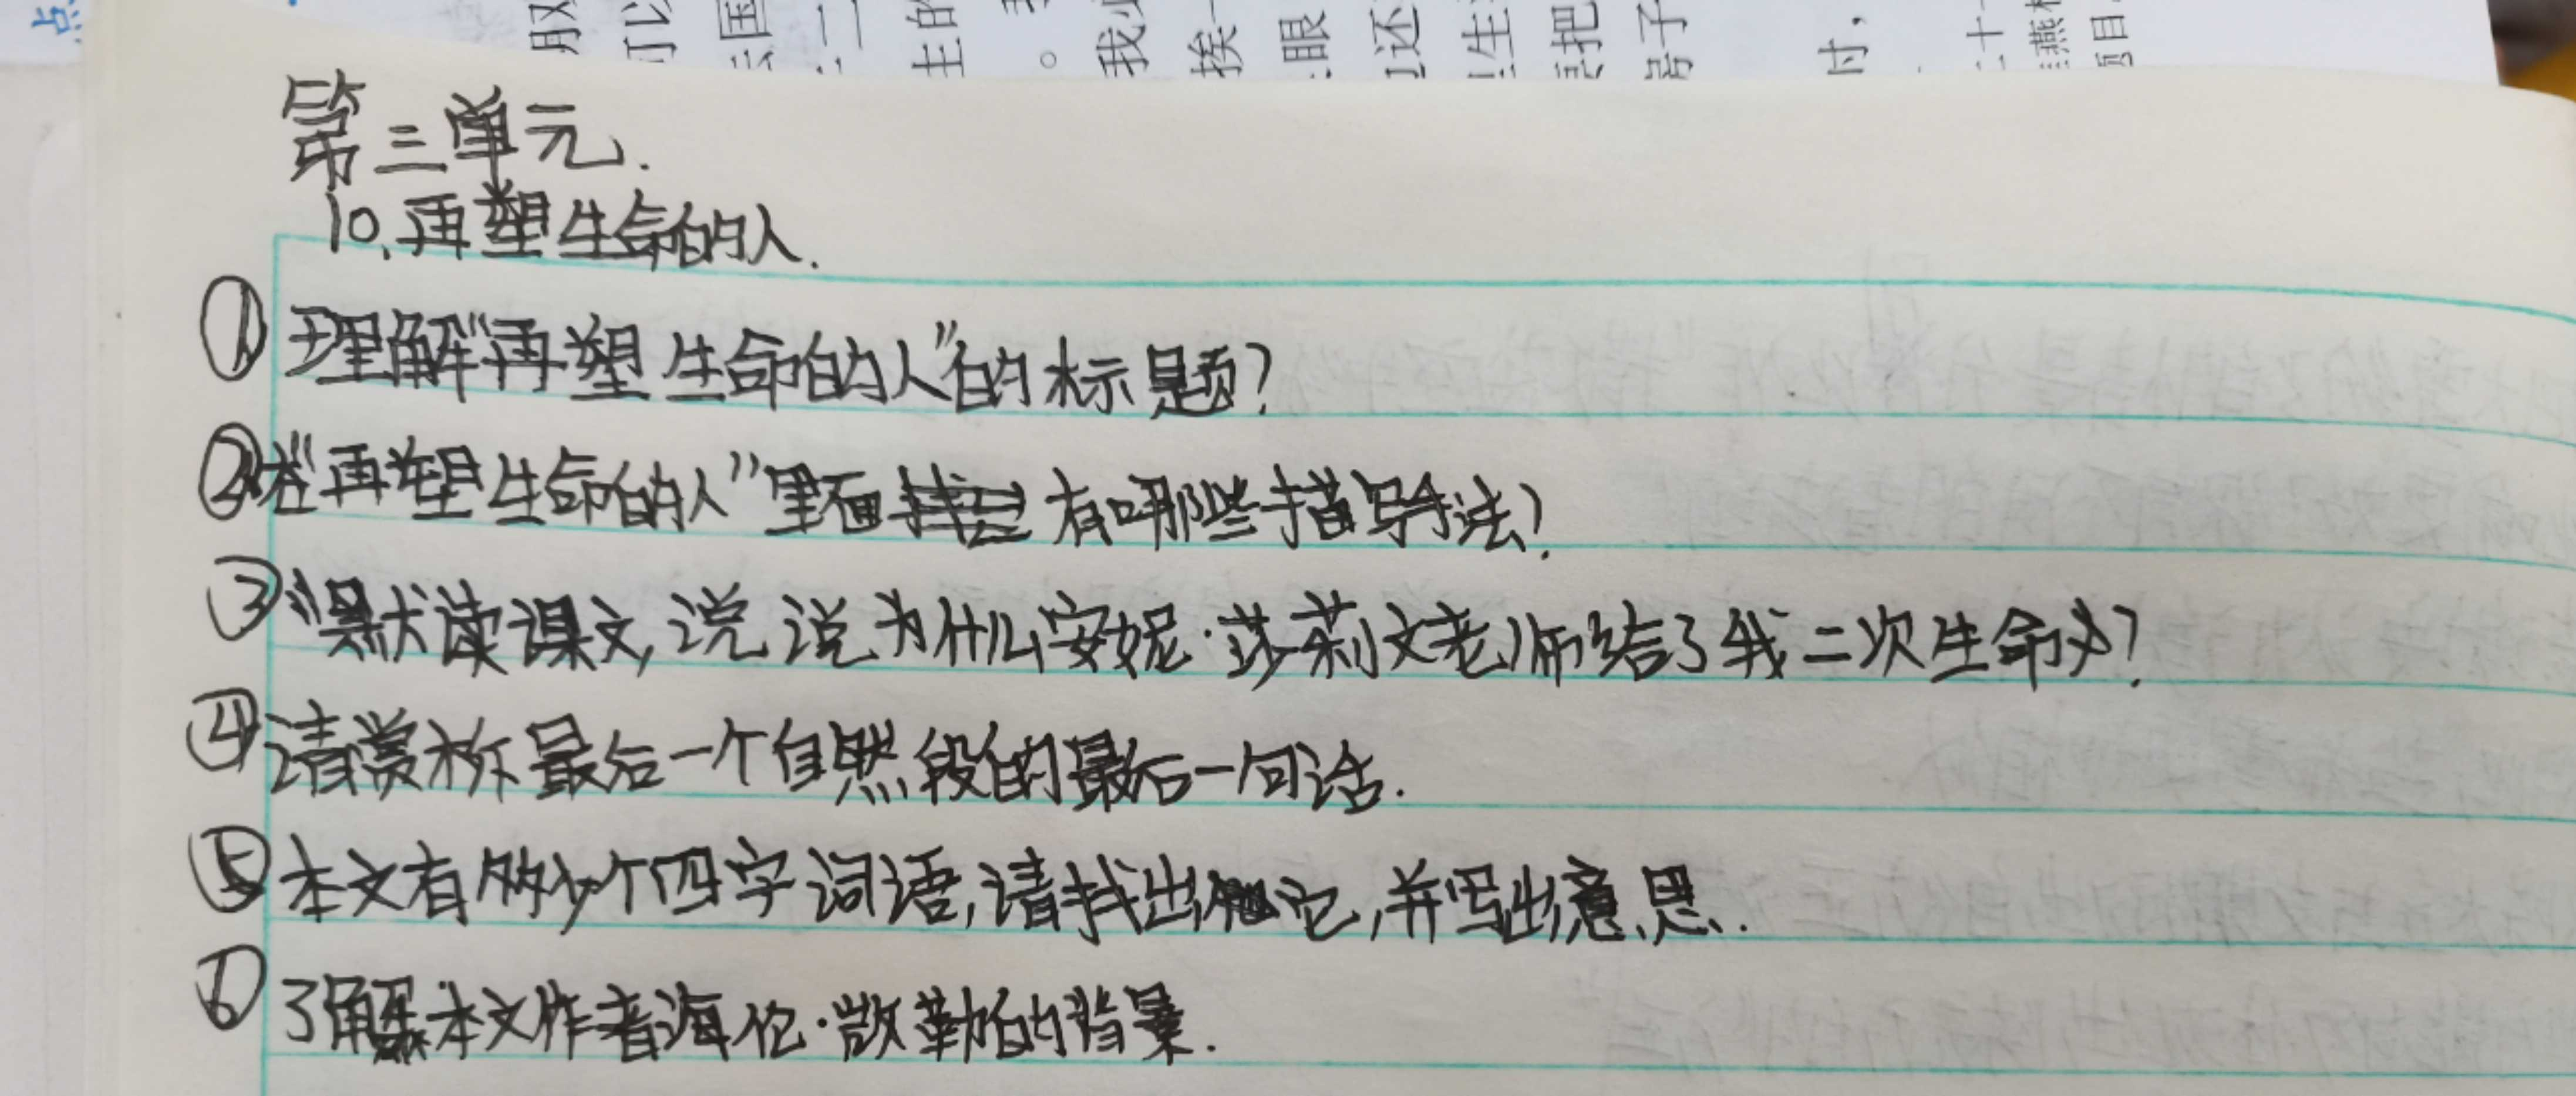 第三单元.
10.再塑生命的人.
①理解“再塑生命的人”的标题?
②在“再塑生命的人”里面有哪些描写手法?
③默读课文,说说为什么安妮·莎莉文老师给了我二次生命?
④请赏析最后一个自然段的最后一句话.
⑤本文有多少个四字词语,请找出它,并写出意思.
⑥了解本文作者海伦·凯勒的背景.